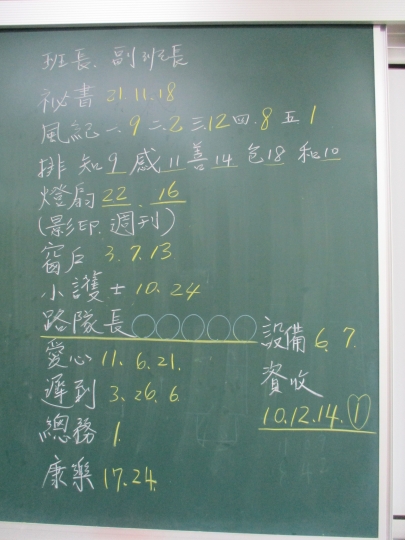 班長、副班長
祕書 21.11.18
風紀 一.9 二.2 三.12 四.8 五 1
排 知9 感11 善14 包18 和10
燈扇 22 . 16
(影印.週刊)
窗戶 3.7.13
小護士 10.24
路隊長○○○○○
愛心 11.6.21.
遲到 3.26.6.
總務 1.
康樂 17.24.
設備 6.7.
資收
10.12.14.①